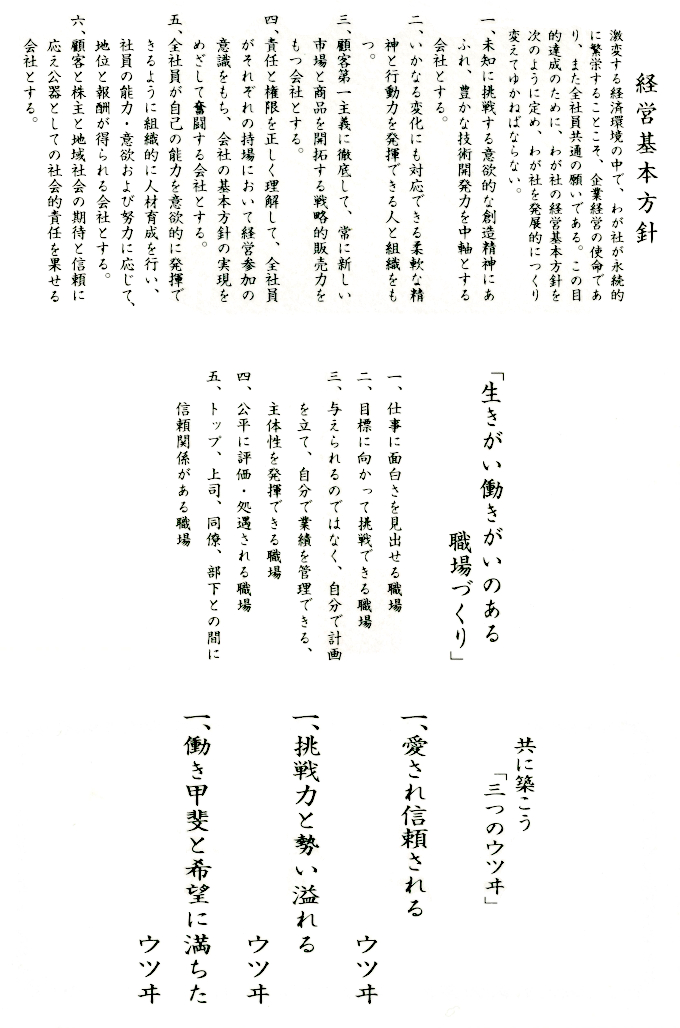 経営基本方針
激変する経済環境の中で、わが社が永続的
に繁栄することこそ、企業経営の使命であ
り、また全社員共通の願いである。この目
的達成のために、わが社の経営基本方針を
次のように定め、わが社を発展的につくり
変えてゆかねばならない。
一、未知に挑戦する意欲的な創造精神にあ
ふれ、豊かな技術開発力を中軸とする
会社とする。
二、いかなる変化にも対応できる柔軟な精
神と行動力を発揮できる人と組織をも
つ。
三、顧客第一主義に徹底して、常に新しい
市場と商品を開拓する戦略的販売力を
もつ会社とする。
四、責任と権限を正しく理解して、全社員
がそれぞれの持場において経営参加の
意識をもち、会社の基本方針の実現を
めざして奮闘する会社とする。
五、全社員が自己の能力を意欲的に発揮で
きるように組織的に人材育成を行い、
社員の能力・意欲および努力に応じて、
地位と報酬が得られる会社とする。
六、顧客と株主と地域社会の期待と信頼に
応え公器としての社会的責任を果せる
会社とする。
「生きがい働きがいのある
職場づくり」
一、仕事に面白さを見出せる職場
二、目標に向かって挑戦できる職場
三、与えられるのではなく、自分で計画
を立て、自分で業績を管理できる、
主体性を発揮できる職場
四、公平に評価・処遇される職場
五、トップ、上司、同僚、部下との間に
信頼関係がある職場
共に築こう
「三つのウツヰ」
一、愛され信頼される
ウツヰ
一、挑戦力と勢い溢れる
ウツヰ
一、働き甲斐と希望に満ちた
ウツヰ